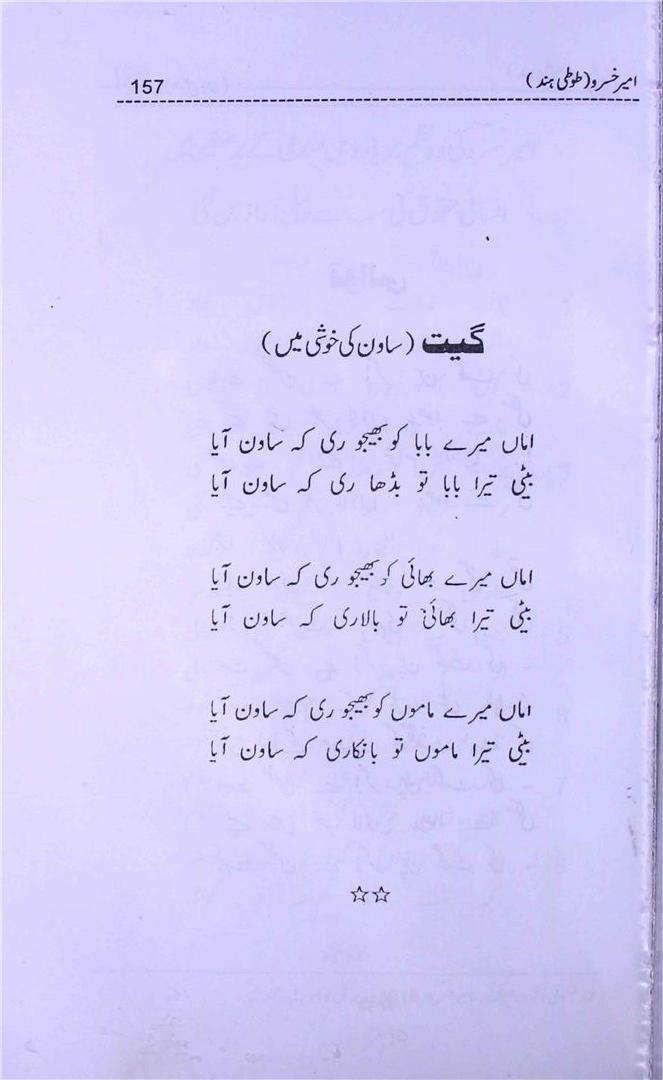 امیر خسرو (طوطی ہند) 157
گیت (ساون کی خوشی میں)
اماں میرے بابا کو بھیجو ری کہ ساون آیا
بیٹی تیرا بابا تو بڈھا ری کہ ساون آیا
اماں میرے بھائی کو بھیجو ری کہ ساون آیا
بیٹی تیرا بھائی تو بالاری کہ ساون آیا
اماں میرے ماموں کو بھیجو ری کہ ساون آیا
بیٹی تیرا ماموں تو بانکاری کہ ساون آیا
☆☆